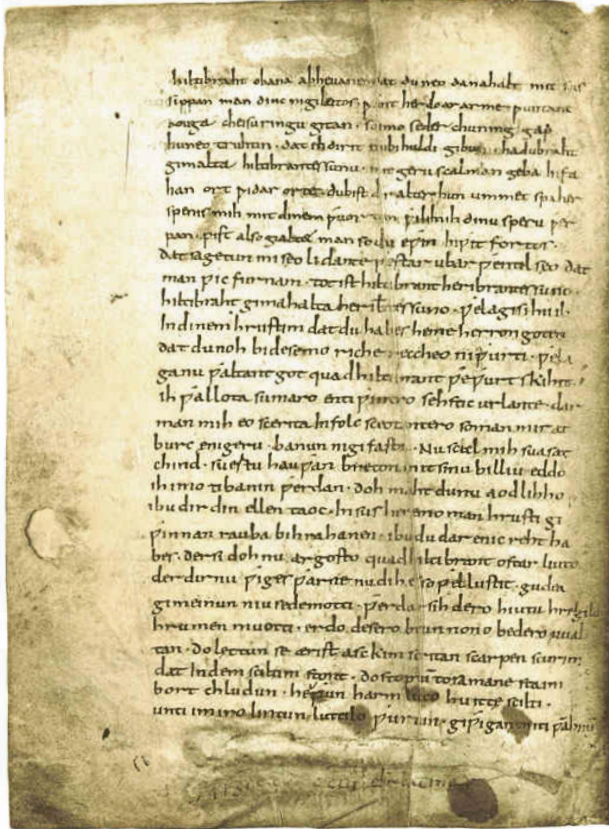 hiltibraht obana abheuane dat duneo danahalt mit sus
sippan man dinc nigileitos ƿant herdoararme ƿuntane
bouga cheisuringu gitan · soimo seder chuning gap
huneo truhtin · dat ihdirit nubihuldi gibu · hadubraht
gimalta hiltibrantes sunu · mit geru scalman geba infa
han ort ƿidar orte · dubist dir alter hun ummet spaher
spenis mih mit dinem ƿuortun ƿilih mih dinu speru ƿer
pan · pist alsogialtet man sodu eƿin inƿit fortos ·
dat sagetun mi seolidante ƿestar ubar ƿentilseo dat
man ƿic furnam · tot ist hiltibrant heribrantes suno ·
hiltibraht gimahalta heribtes suno · ƿelagisihu ih
Indinem hrustim dat du habes heme herron goten
dat dunoh bidesemo riche reccheo niƿurti · ƿela
ganu ƿaltant got quad hiltibrant ƿeƿurt skihit
ih ƿallota sumaro enti ƿintro sehstic urlante · dar
man mih eo scerita Infolc sceotantero soman mir at
burc enigeru · banun nigifasta · Nu scal mih suasat
chind · suertu hauƿan breton mit sinu billiu eddo
ih imo tibanin ƿerdan · doh maht dunu aodlihho
ibu dir din ellen taoc · Insus heremo man hrusti gi
ƿinnan rauba bihrahanen · ibu du dar enic reht ha
bes · dersi dohnu argosto quad hiltibrant ostar liuto
derdirnu ƿiges ƿarne nudih es so ƿel lustit · gudea
gimeinun niusedemotti · ƿerdar sih dero hiutu hregilo
hrumen muotti · erdo desero brunnono bedero uual
tan · do lettun se ærist asckim scritan scarpen scurim
dat Indem sciltim stont · dostoptun tosamane staim
bort chludun · heƿun harmlicco huitte scilti ·
unti im iro lintun luttilo ƿurtun · giƿigan miti ƿabnum